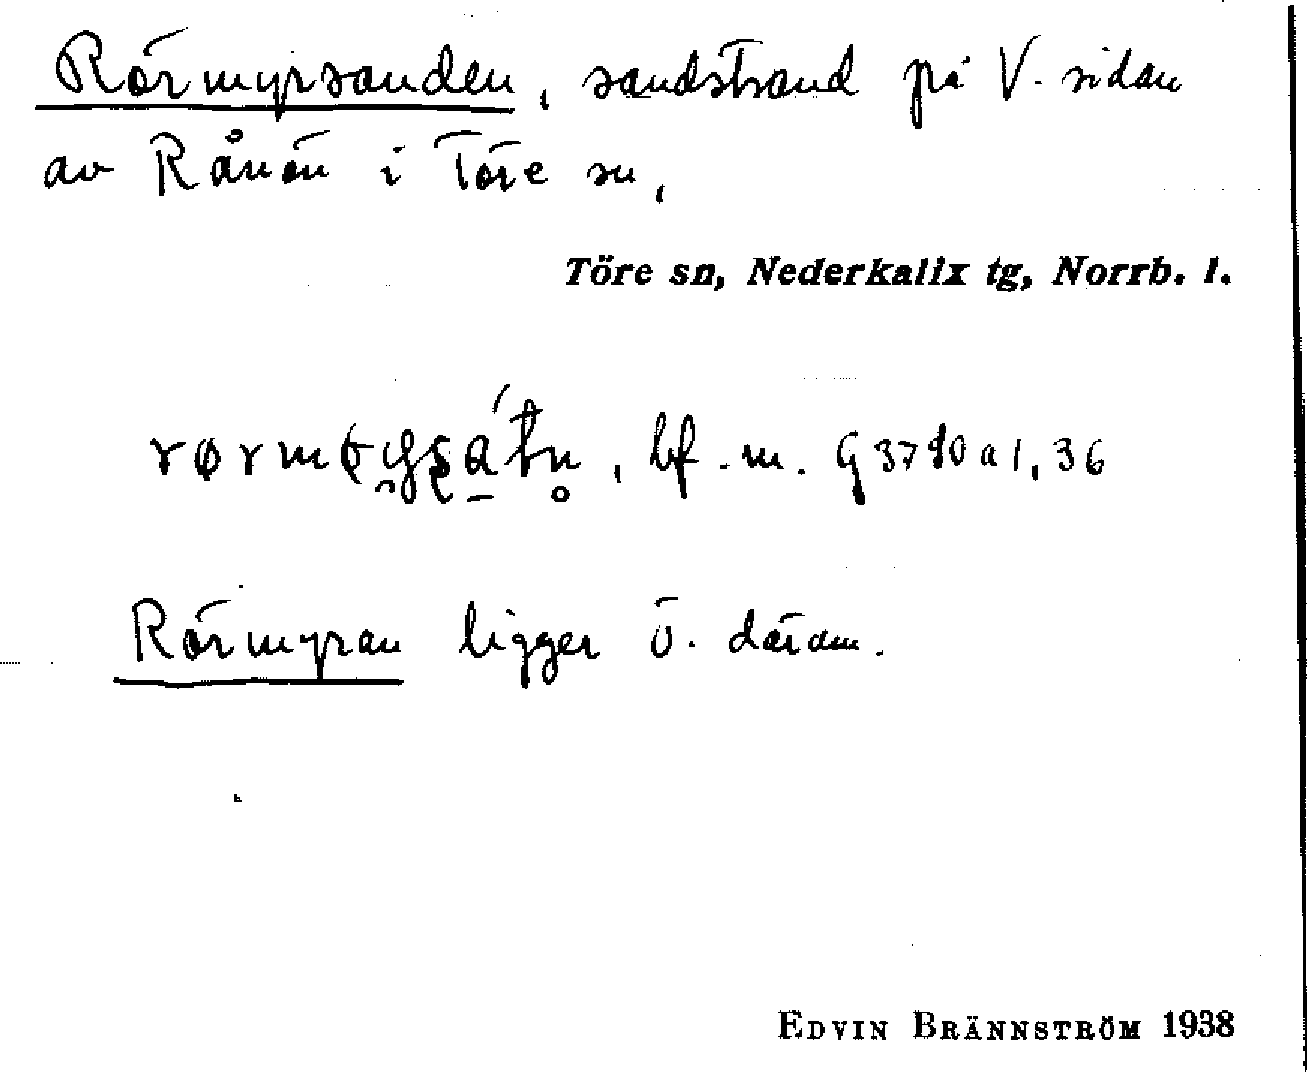 Rörmyrsanden, sandstrand på V. sidan
av Rånön i Töre sn,
Töre sn, Nederkalix tg, Norrb. l.
bf. m. G 3790 a 1, 36
Rörmyran ligger ö. därom.
EDVIN BRÄNNSTRÖM 1938